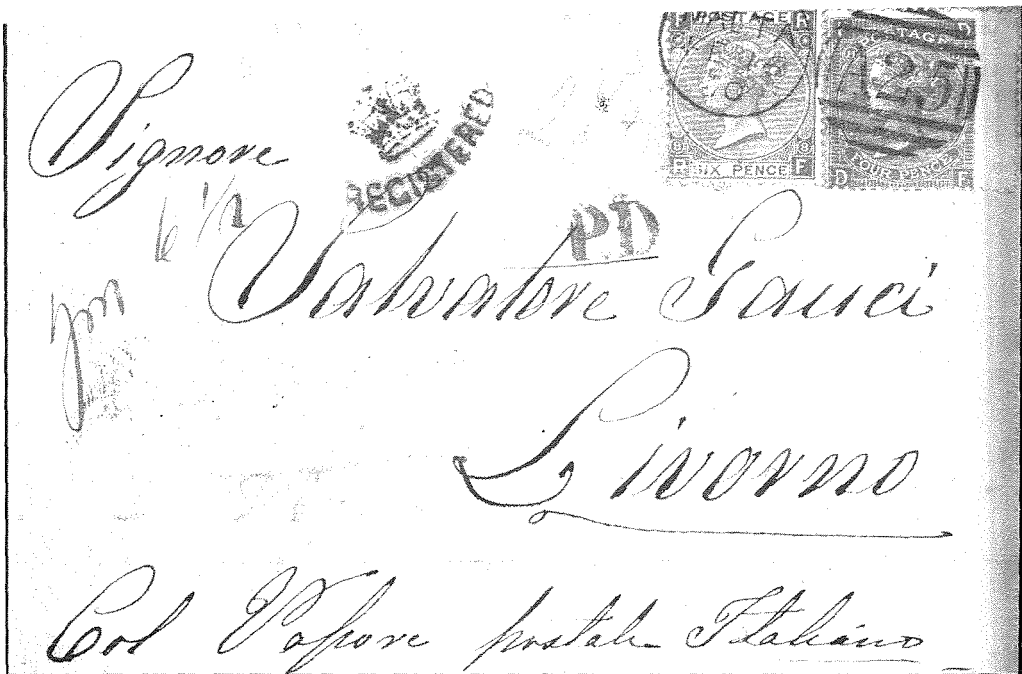 POSTAGE
POSTAGE
A25
SIX PENCE
R F
FOUR PENCE
D F
REGISTERED
P.D
Signore
Salvatore Gauci
Livorno
Col Vapore postale Italiano